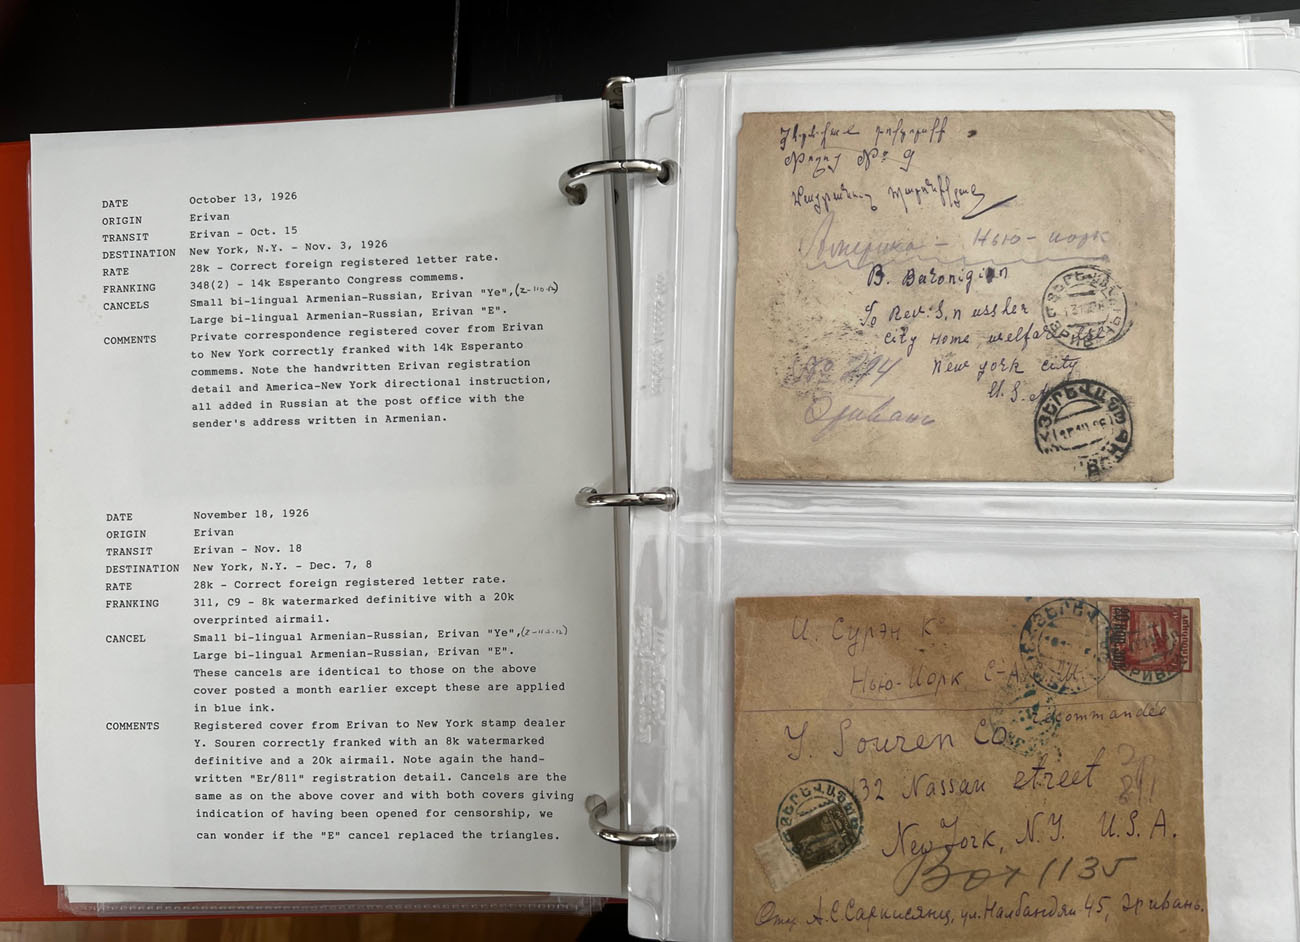 DATE October 13, 1926
ORIGIN Erivan
TRANSIT Erivan - Oct. 15
DESTINATION New York, N.Y. - Nov. 3, 1926
RATE 28k - Correct foreign registered letter rate.
FRANKING 348(2) - 14k Esperanto Congress commems.
CANCELS Small bi-lingual Armenian-Russian, Erivan "Ye",
Large bi-lingual Armenian-Russian, Erivan "E".
COMMENTS Private correspondence registered cover from Erivan
to New York correctly franked with 14k Esperanto
commems. Note the handwritten Erivan registration
detail and America-New York directional instruction,
all added in Russian at the post office with the
sender's address written in Armenian.
DATE November 18, 1926
ORIGIN Erivan
TRANSIT Erivan - Nov. 18
DESTINATION New York, N.Y. - Dec. 7, 8
RATE 28k - Correct foreign registered letter rate.
FRANKING 311, C9 - 8k watermarked definitive with a 20k
overprinted airmail.
CANCEL Small bi-lingual Armenian-Russian, Erivan "Ye",
Large bi-lingual Armenian-Russian, Erivan "E".
These cancels are identical to those on the above
cover posted a month earlier except these are applied
in blue ink.
COMMENTS Registered cover from Erivan to New York stamp dealer
Y. Souren correctly franked with an 8k watermarked
definitive and a 20k airmail. Note again the hand-
written "Er/811" registration detail. Cancels are the
same as on the above cover and with both covers giving
indication of having been opened for censorship, we
can wonder if the "E" cancel replaced the triangles.
№ 9
Америка - Нью-Йорк
B. Baronigian
To Rev. S.
City Home
New york city
U. S. A.
№ 244
Эривань
И. Сурэн Ко
Нью-Йорк С-А
Recommandée
Y. Souren Co
132 Nassau street
Эр
811
New York, N.Y. U.S.A.
Box 1135
Отп. А.С. Саркисянц, ул. Налбандян 45, Эривань.